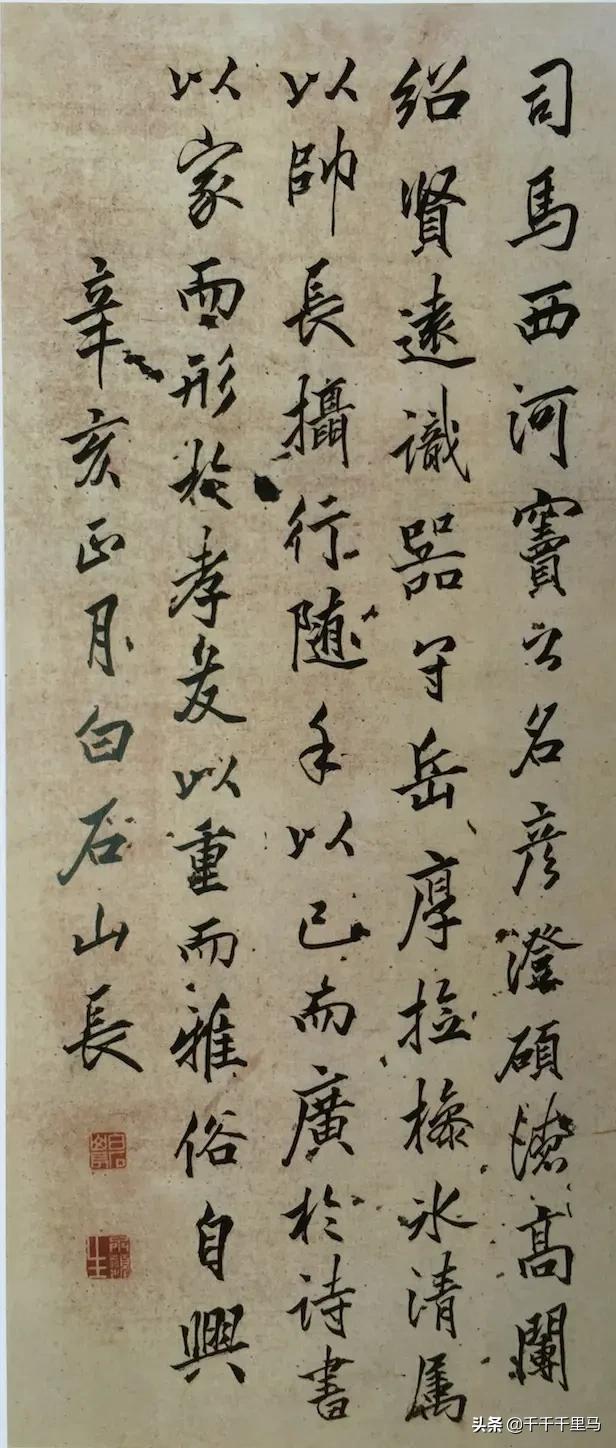 司馬西河竇公名彥澄碩德高闌
紹賢遠識器守岳厚撿操冰清属
以帥長攝行随手以己而廣於詩書
以家而形於孝友以重而雅俗自興
辛亥正月白石山長
头条 @千千千里马